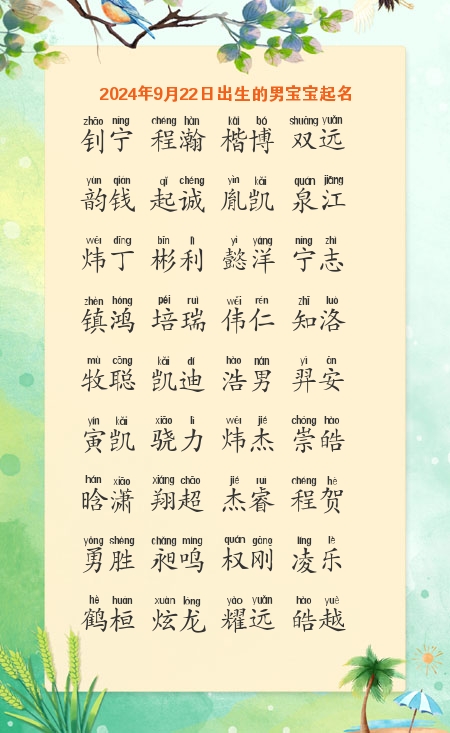 2024年9月22日出生的男宝宝起名
zhāo níng chéng hàn kǎi bó shuāng yuǎn
钊宁 程瀚 楷博 双远
yùn qián qǐ chéng yìn kǎi quán jiāng
韵钱 起诚 胤凯 泉江
wěi dīng bīn lì yì yáng níng zhì
炜丁 彬利 懿洋 宁志
zhèn hóng péi ruì wěi rén zhī luò
镇鸿 培瑞 伟仁 知洛
mù cōng kǎi dí hào nán yì ān
牧聪 凯迪 浩男 羿安
yín kǎi xiāo lì wěi jié chóng hào
寅凯 骁力 炜杰 崇皓
hán xiāo xiáng chāo jié ruì chéng hè
晗潇 翔超 杰睿 程贺
yǒng shèng chǎng míng quán gāng líng lè
勇胜 昶鸣 权刚 凌乐
hè huán xuàn lóng yào yuǎn hào yuè
鹤桓 炫龙 耀远 皓越